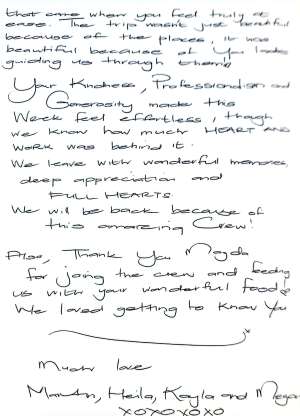 that come when you feel truly at
ease. The trip wasn't just beautiful
because of the places, it was
beautiful because of You ladies
guiding us through them!
Your Kindness, Professionalism and
Generosity made this
Week feel effortless, though
we know how much HEART AND
WORK was behind it.
We leave with wonderful memories,
deep appreciation and
FULL HEARTS.
We will be back because of
this amazing Crew!
Also, Thank You Magda
for joing the crew and feeding
us with your wonderful food
We loved getting to know You
Much love
Heila, Kayla and Megan
XOXOXOXO